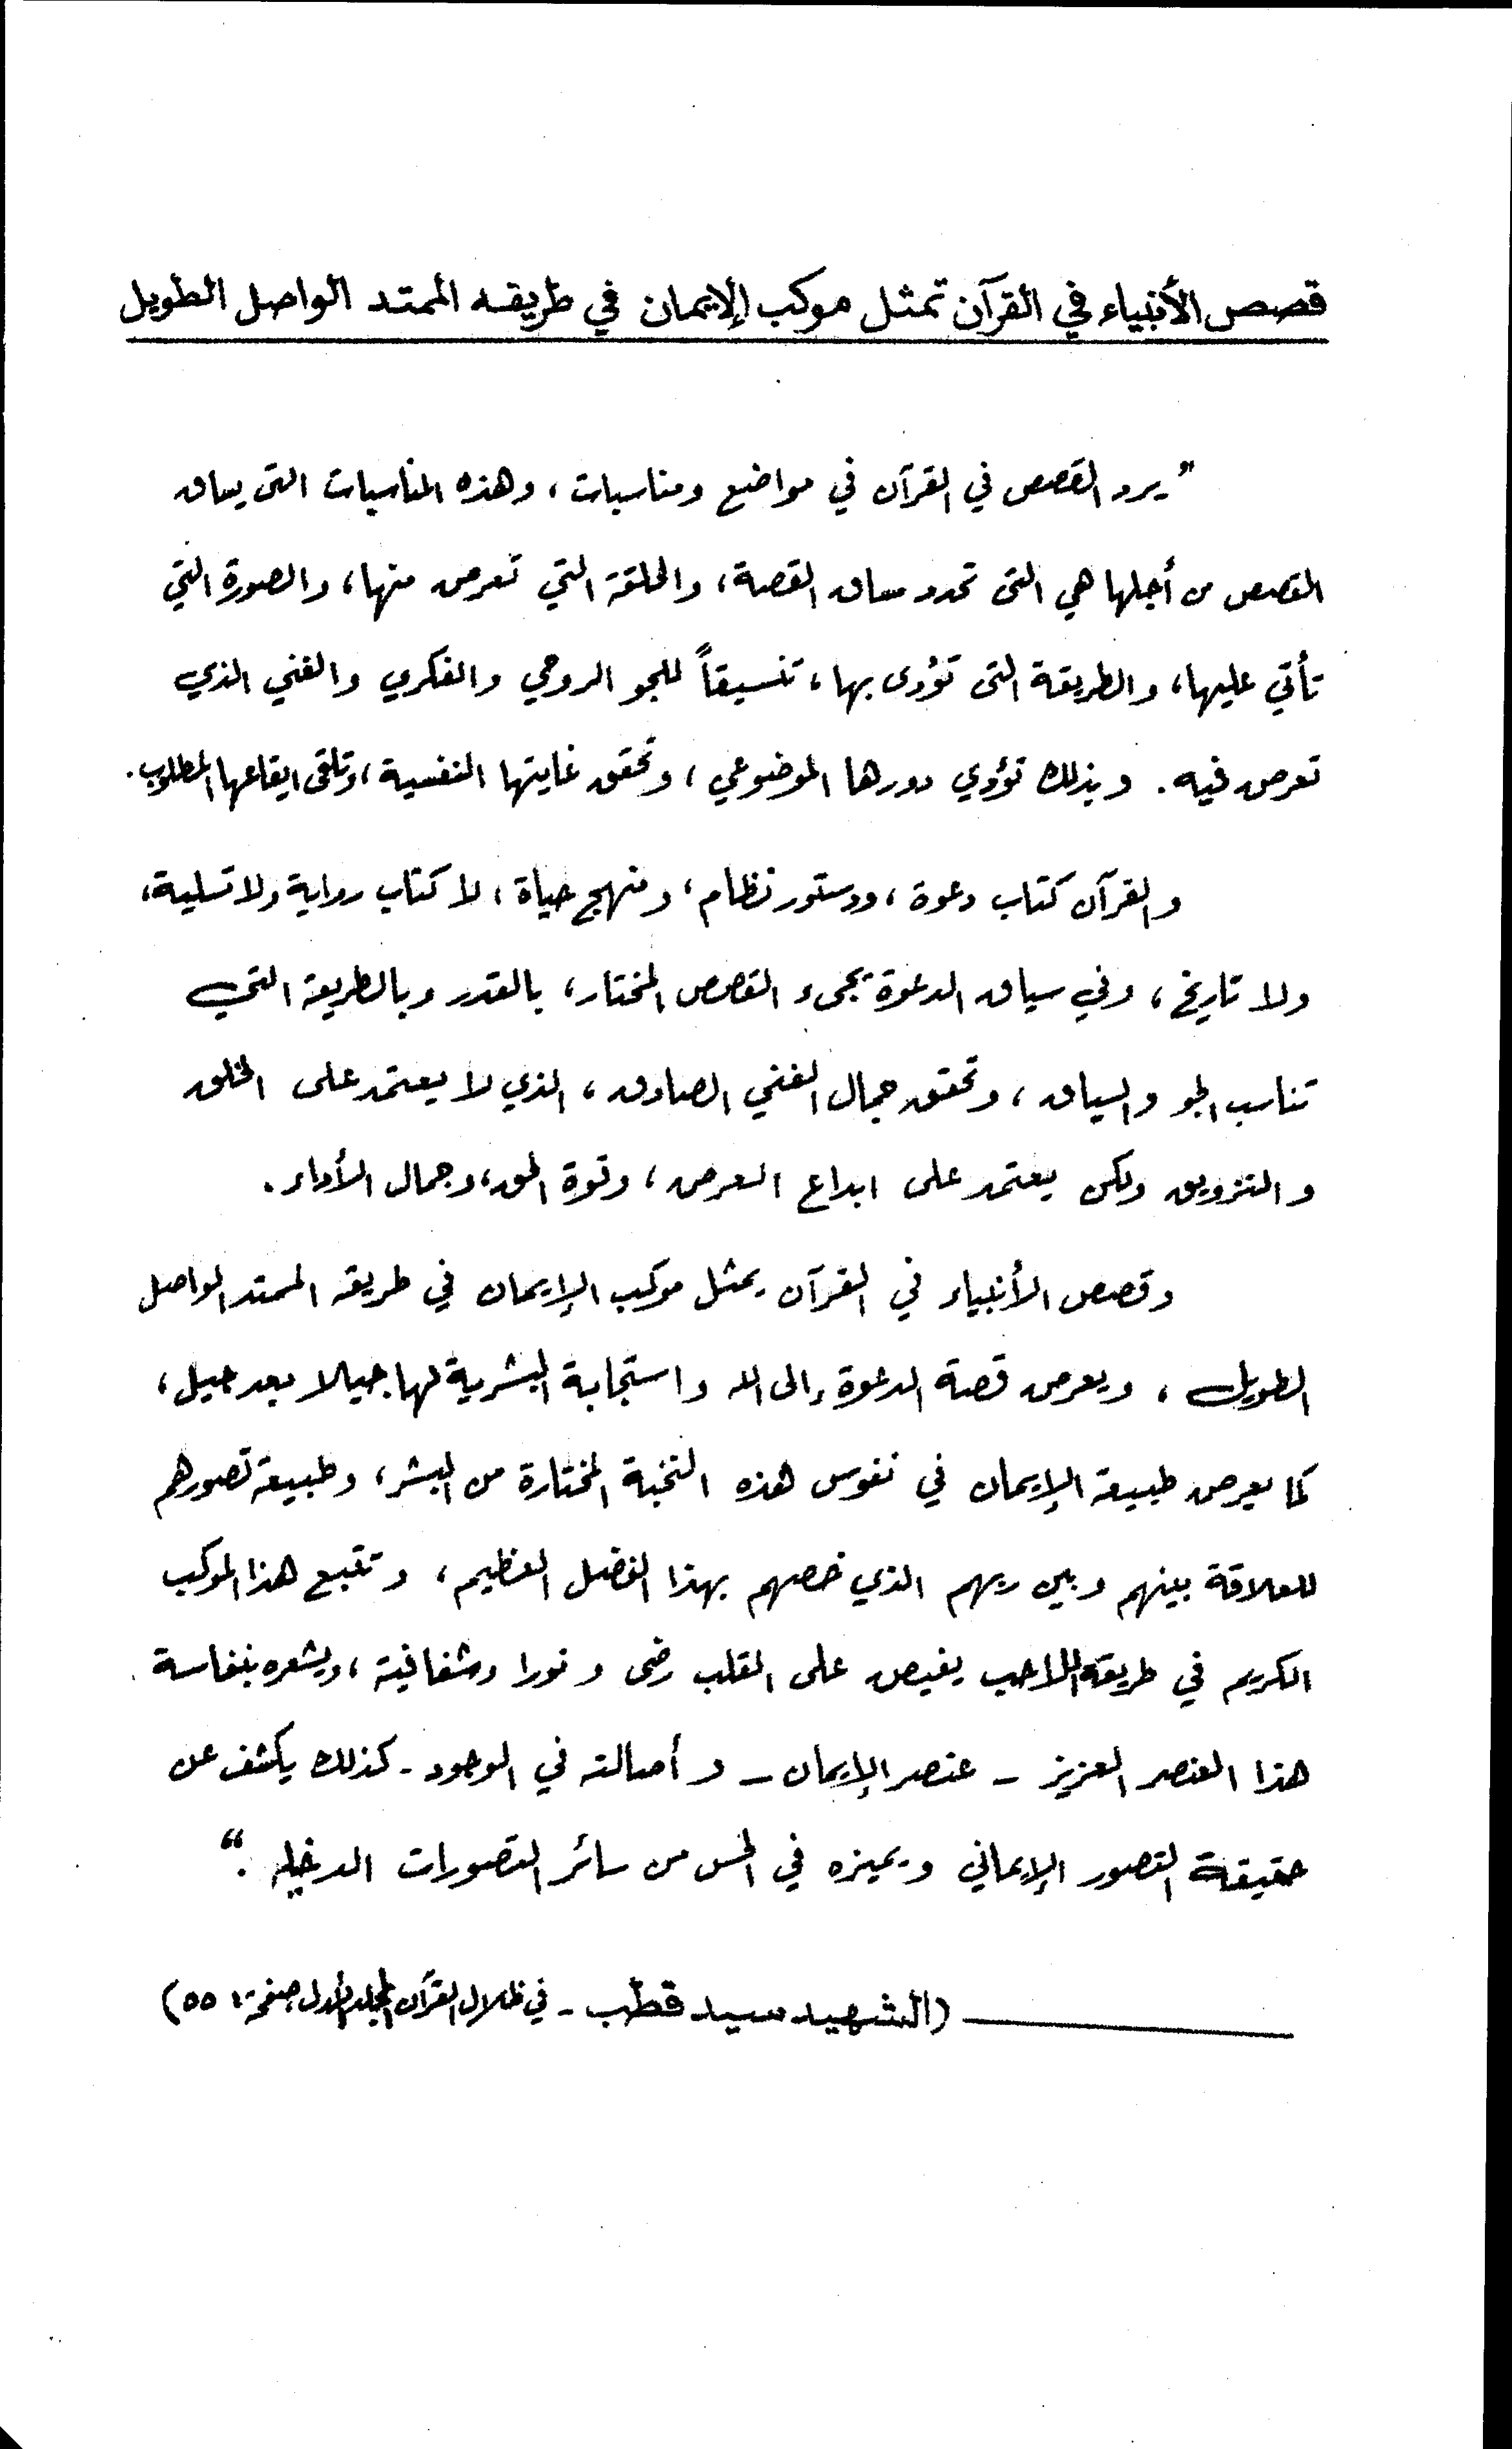 قصص الأنبياء في القرآن تمثل موكب الإيمان في طريقه الممتد الواصل الطويل
"يرد القصص في القرآن في مواضع ومناسبات، وهذه المناسبات التى يساق
القصص من أجلها هي التى تحدد مساق القصة، والحلقة التي تعرض منها، والصورة التي
تأتي عليها، والطريقة التى تؤدى بها، تنسيقاً للجو الروحي والفكري والفني الذي
تعرض فيه. وبذلك تؤدي دورها الموضوعي، وتحقق غايتها النفسية، وتلقى ايقاعها المطلوب.
والقرآن كتاب دعوة، ودستور نظام، ومنهج حياة، لا كتاب رواية ولا تسلية،
ولا تاريخ، وفي سياق الدعوة يجىء القصص المختار، بالقدر وبالطريقة التي
تناسب الجو والسياق، وتحقق جمال الفني الصادق، الذي لا يعتمد على الخلق
والتزويق ولكن يعتمد على ابداع العرض، وقوة الحق، وجمال الأداء.
وقصص الأنبياء في القرآن يمثل موكب الإيمان في طريقه الممتد الواصل
الطويل، ويعرض قصة الدعوة إلى الله واستجابة البشرية لها جيلا بعد جيل،
كما يعرض طبيعة الإيمان في نفوس هذه النخبة المختارة من البشر، وطبيعة تصورهم
للعلاقة بينهم وبين ربهم الذي خصهم بهذا الفضل العظيم، وتتبع هذا الموكب
الكريم في طريقه اللاحب يفيض على القلب رضى ونورا وشفافية، ويشعره بنفاسة
هذا العنصر العزيز - عنصر الإيمان - وأصالته في الوجود - كذلك يكشف عن
حقيقة التصور الإيماني ويميزه في الحس من سائر التصورات الدخيلة."
(الشهيد سيد قطب - في ظلال القرآن المجلد الأول صفحة: ٥٥)